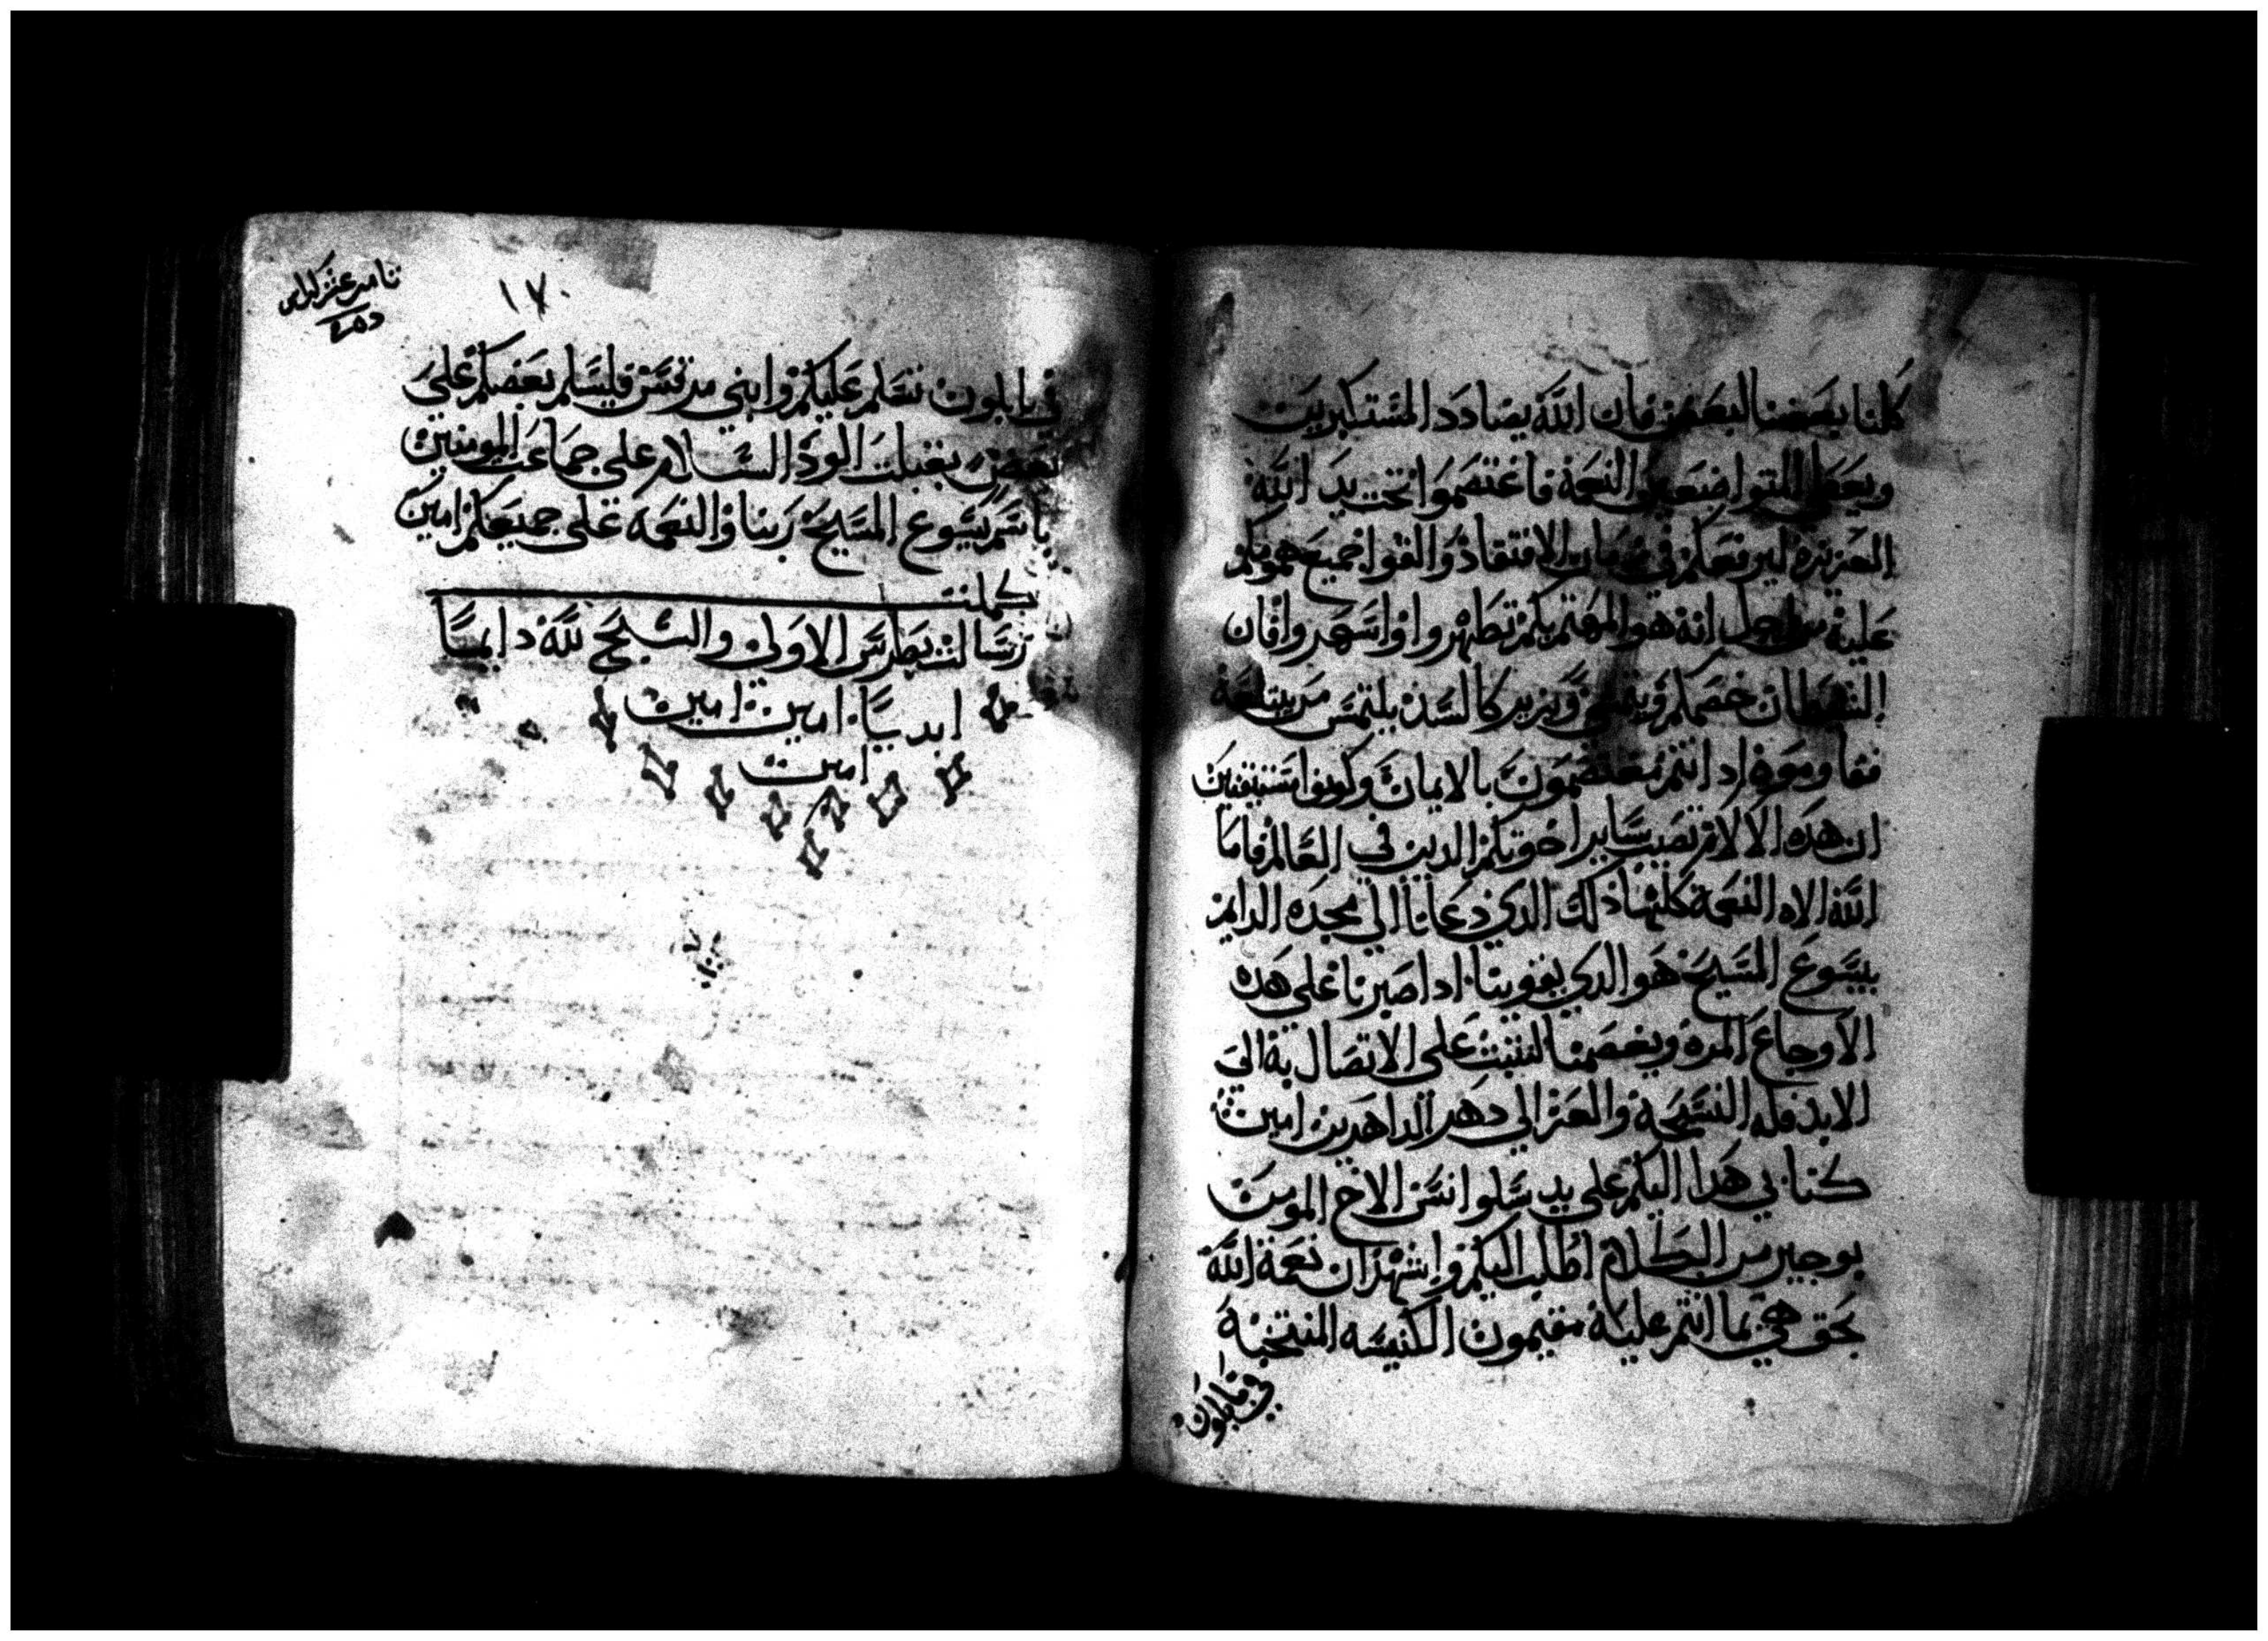 كلنا بعضنا لبعض فان الله يضادد المستكبرين
ويعطي المتواضعين النعمة فاعتصموا تحت يد الله
العزيزة ليرفعكم في زمان الافتقاد والقوا جميع همومكم
عليه من اجل انه هو المهتم بكم تطهروا واسهروا فان
الشيطان خصمكم ويزير كالسد يلتمس من يبتلعه
فقاوموه اد انتم معتصمون بالايمان وكونوا مستيقنين
ان هده الالام تصيب ساير اخوتكم الدين في العالم فاما
الله الاه النعمة كلها ذلك الدي دعانا الي مجده الدايم
بيسوع المسيح هو الدي يقوينا ادا صبرنا علي هده
الاوجاع المرة ويعصمنا لنثبت علي الاتصال به الي
الابد فله التسبحة والعز الي دهر الداهرين امين
كتابي هدا اليكم علي يد سلوانس الاخ المومن
بوجيز من الكلام اطلب اليكم واشهد ان نعمة الله
بحق هي بما انتم عليه مقيمون الكنيسه المنتخبة
في بابلون
١٧٠
في بابلون تسلم عليكم وابني مرقس فليسلم بعضكم علي
بعض بقبلت الود السلام علي جماعت المومنين
باسم يسوع المسيح ربنا والنعمه علي جميعكم امين
كملت
رسالت بطرس الاولي والسبح لله دايميًا
ابديًا امين امين
امين